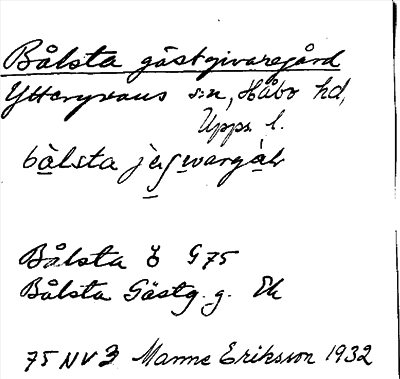 Bålsta gästgivaregård
Yttergrans s:n, Håbo hd,
Upps. l.
bålsta
Bålsta G75
Bålsta Gästg. g. Ek
75 NV 3 Manne Eriksson 1932